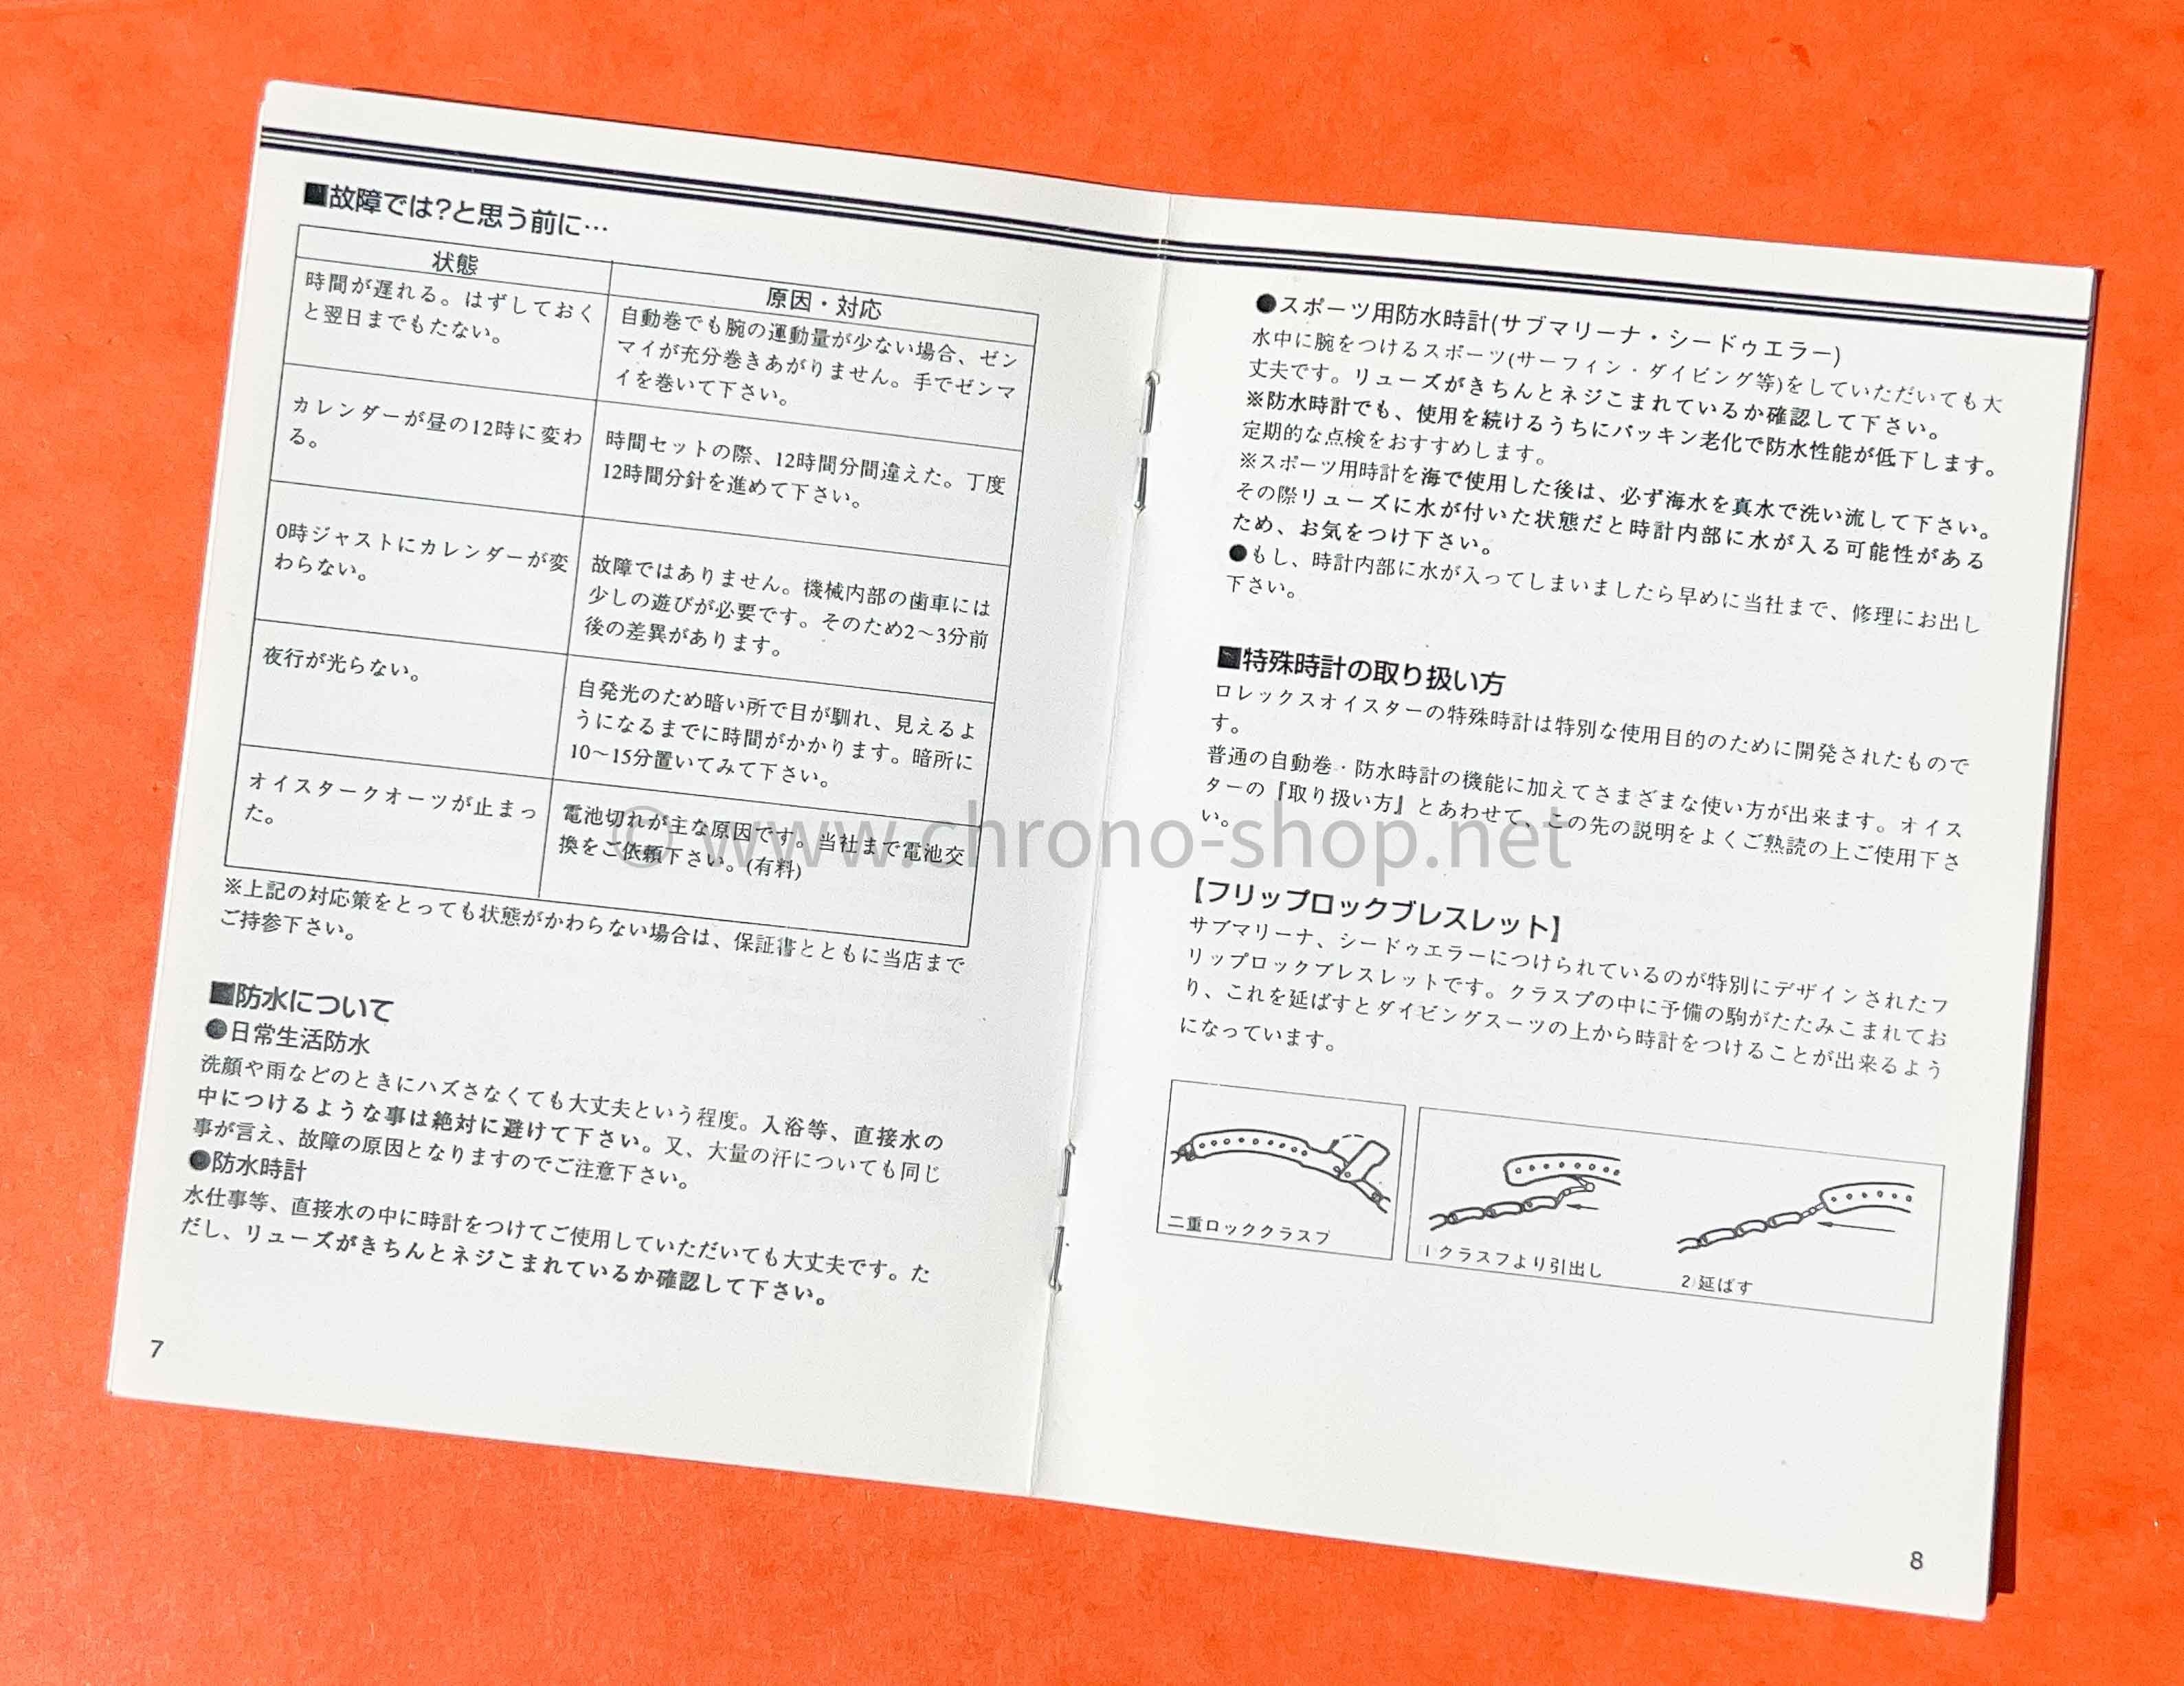 ■故障では?と思う前に…
状態
原因・対応
時間が遅れる。はずしておく
と翌日までもたない。
自動巻でも腕の運動量が少ない場合、ゼン
マイが充分巻きあがりません。手でゼンマ
イを巻いて下さい。
カレンダーが昼の12時に変わ
る。
時間セットの際、12時間分間違えた。丁度
12時間分針を進めて下さい。
0時ジャストにカレンダーが変
わらない。
故障ではありません。機械内部の歯車には
少しの遊びが必要です。そのため2〜3分前
後の差異があります。
夜行が光らない。
自発光のため暗い所で目が馴れ、見えるよ
うになるまでに時間がかかります。暗所に
10〜15分置いてみて下さい。
オイスタークオーツが止まっ
た。
電池切れが主な原因です。当社まで電池交
換をご依頼下さい。(有料)
※上記の対応策をとっても状態がかわらない場合は、保証書とともに当店まで
ご持参下さい。
■防水について
●日常生活防水
洗顔や雨などのときにハズさなくても大丈夫という程度。入浴等、直接水の
中につけるような事は絶対に避けて下さい。又、大量の汗についても同じ
事が言え、故障の原因となりますのでご注意下さい。
●防水時計
水仕事等、直接水の中に時計をつけてご使用していただいても大丈夫です。た
だし、リューズがきちんとネジこまれているか確認して下さい。
7
●スポーツ用防水時計(サブマリーナ・シードゥエラー)
水中に腕をつけるスポーツ(サーフィン・ダイビング等)をしていただいても大
丈夫です。リューズがきちんとネジこまれているか確認して下さい。
※防水時計でも、使用を続けるうちにパッキン老化で防水性能が低下します。
定期的な点検をおすすめします。
※スポーツ用時計を海で使用した後は、必ず海水を真水で洗い流して下さい。
その際リューズに水が付いた状態だと時計内部に水が入る可能性がある
ため、お気をつけ下さい。
●もし、時計内部に水が入ってしまいましたら早めに当社まで、修理にお出し
下さい。
■特殊時計の取り扱い方
ロレックスオイスターの特殊時計は特別な使用目的のために開発されたもので
す。
普通の自動巻・防水時計の機能に加えてさまざまな使い方が出来ます。オイス
ターの『取り扱い方』とあわせて、この先の説明をよくご熟読の上ご使用下さ
い。
【フリップロックブレスレット】
サブマリーナ、シードゥエラーにつけられているのが特別にデザインされたフ
リップロックブレスレットです。クラスプの中に予備の駒がたたみこまれてお
り、これを延ばすとダイビングスーツの上から時計をつけることが出来るよう
になっています。
二重ロッククラスプ
1クラスプより引出し
2)延ばす
8
© www.chrono-shop.net